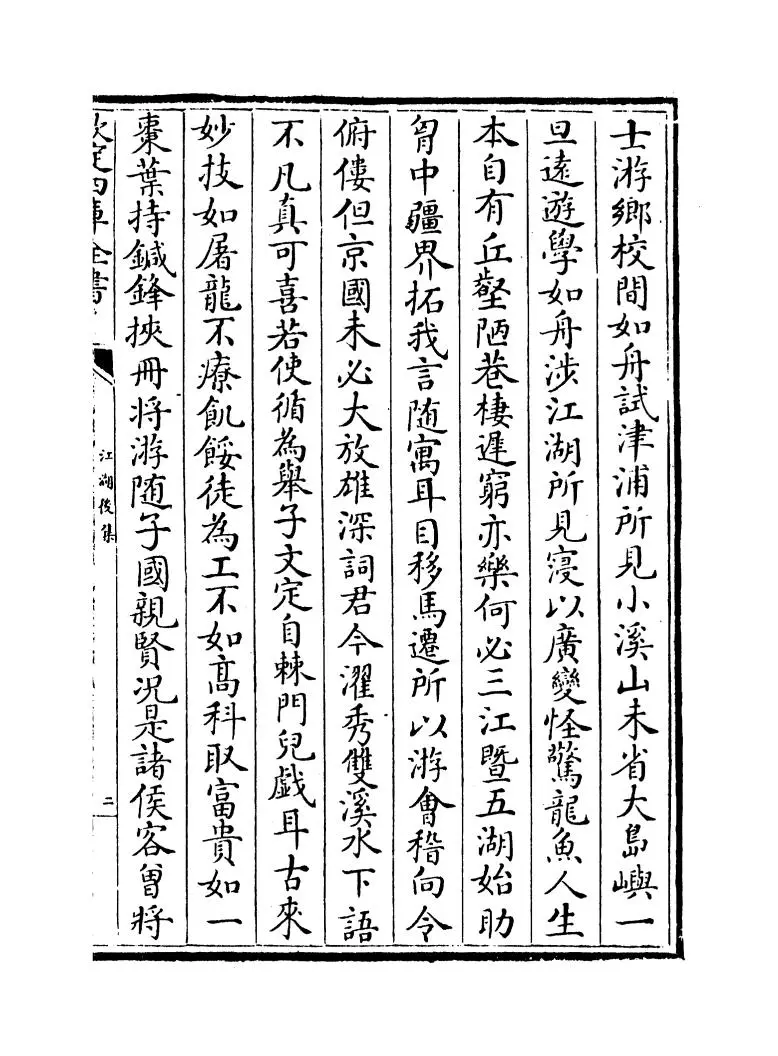 士游鄉校間如舟試津浦所見小溪山未省大島嶼一
旦遠遊學如舟涉江湖所見寖以廣變怪驚龍魚人生
本自有丘壑陋巷棲遲窮亦樂何必三江暨五湖始助
胷中疆界拓我言随寓耳目移馬遷所以游會稽向令
俯僂但京國未必大放雄深詞君今濯秀雙溪水下語
不凡真可喜若使循為舉子文定自棘門兒戯耳古來
妙技如屠龍不療飢餒徒為工不如髙科取富貴如一
棗葉持鍼鋒挾冊将游随子國親賢况是諸侯客曾将
欽定四庫全書
江湖後集
二